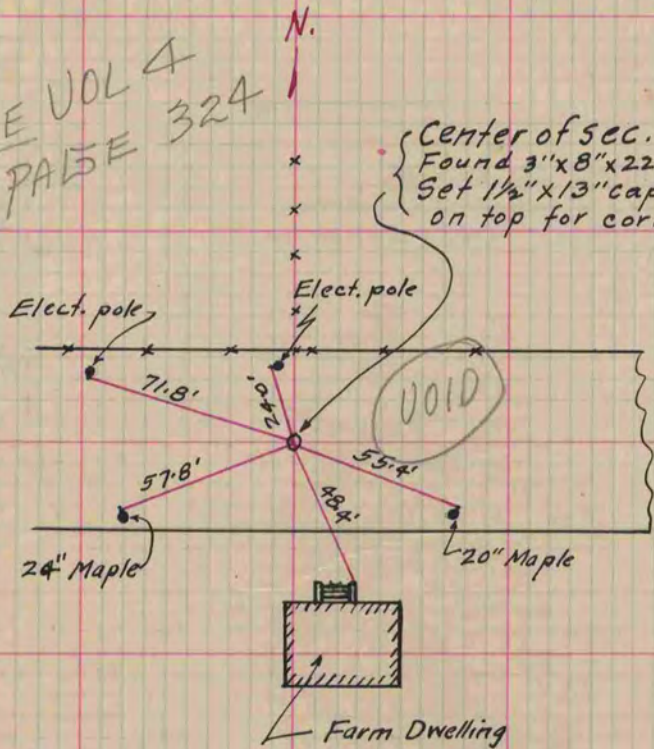 N.
E VOL 4
PAGE 324
Center of sec.
Found 3"x8"x22
Set 1½"x13" cap
on top for cor
Elect. pole
Elect. pole
71.8'
24.0'
VOID
57.8'
55.4'
48.4'
24" Maple
20" Maple
Farm Dwelling